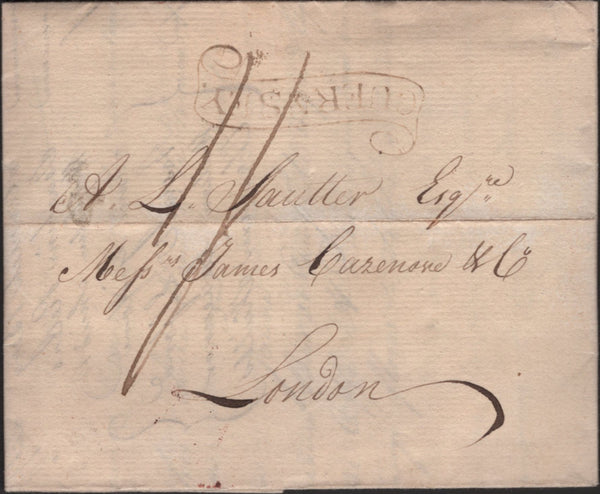 GUERNSEY
A. L. Sautter Esqre
Messrs James Cazenove & Co
London